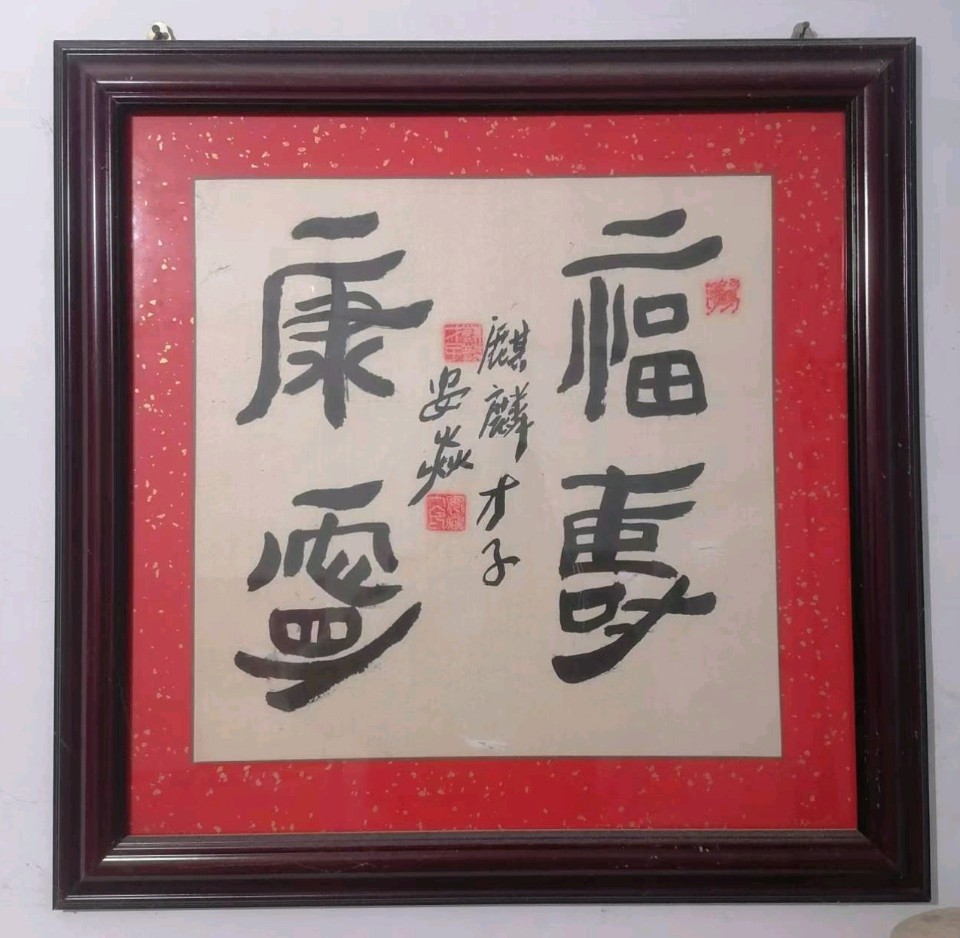 福壽
康寧
麒麟才子
安焱